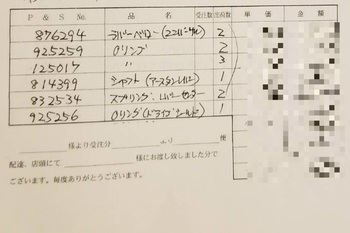 P & S No. 品 名 受注数 出荷数 単 価 金 額
876294 2
925259 Oリング 2
125017 〃 3
814399 シャフト (アースタンレバー) 1
832534 スプリング、レバーセンター 2
925256 Oリング(ドライブシールド) 1
様より受注分 より 便
配達、店頭にて 様にお渡し致しました分で
ございます。毎度ありがとうございます。